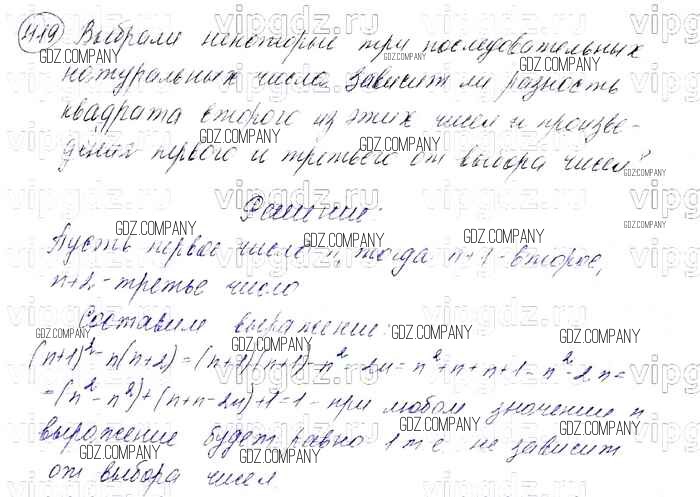 н19 Выбрали некоторые три последовательных
натуральных числа. Зависит ли разность
квадрата второго из этих чисел и произве-
дения первого и третьего от выбора чисел?
Решение:
Пусть первое число n, тогда n+1 - второе,
n+2 - третье число
Составим выражение:
(n+1)² - n(n+2) = (n+1)(n+1) - n² - 2n = n² + n + n + 1 = n² - 2n =
= (n² - n²) + (n+n - 2n) + 1 = 1 - при любом значении n
выражение будет равно 1 т.е. не зависит
от выбора чисел
GDZ.COMPANY
vipgdz.ru